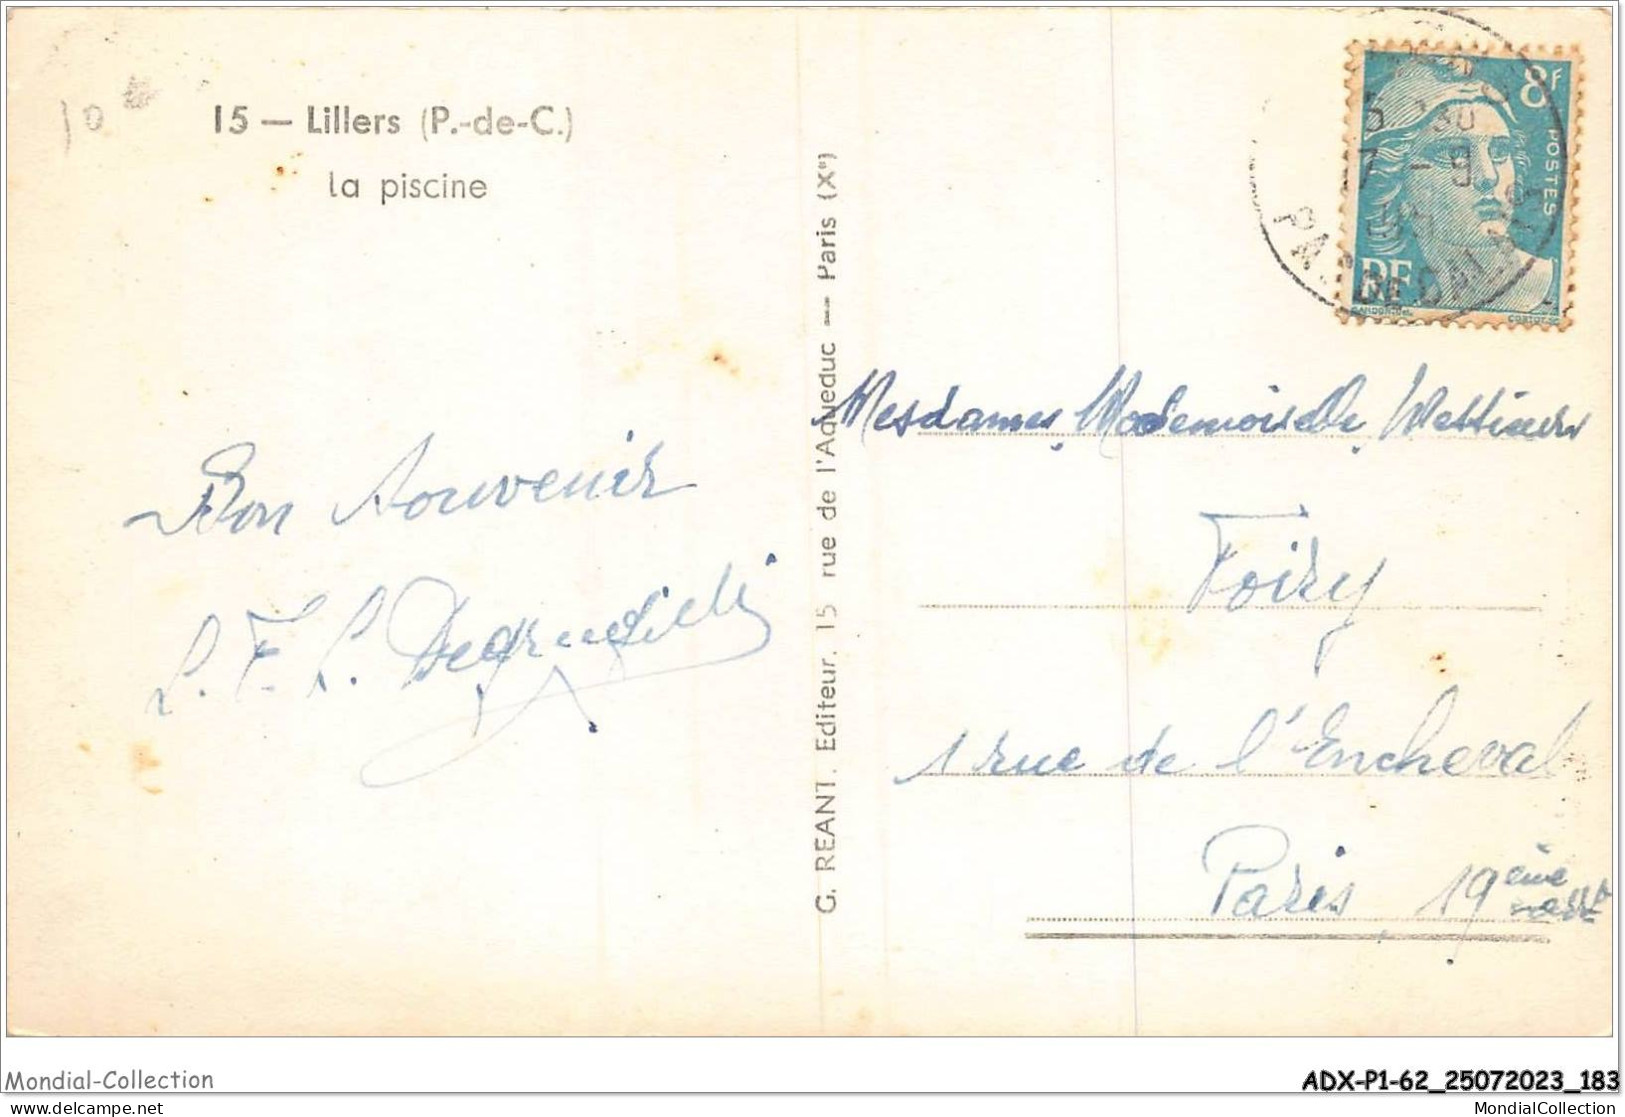 10
15 — Lillers (P.-de-C.)
La piscine
Bon Souvenir
G. REANT. Editeur. 15 rue de l'Aqueduc — Paris (Xe)
8F
POSTES
RF
7 - 9
PAS DE CALAIS
Mesdames, Mademoiselle, Messieurs
Foiry
1 rue de l'Encheval
Paris 19ème
Mondial-Collection
ADX-P1-62_25072023_183
www.delcampe.net
MondialCollection